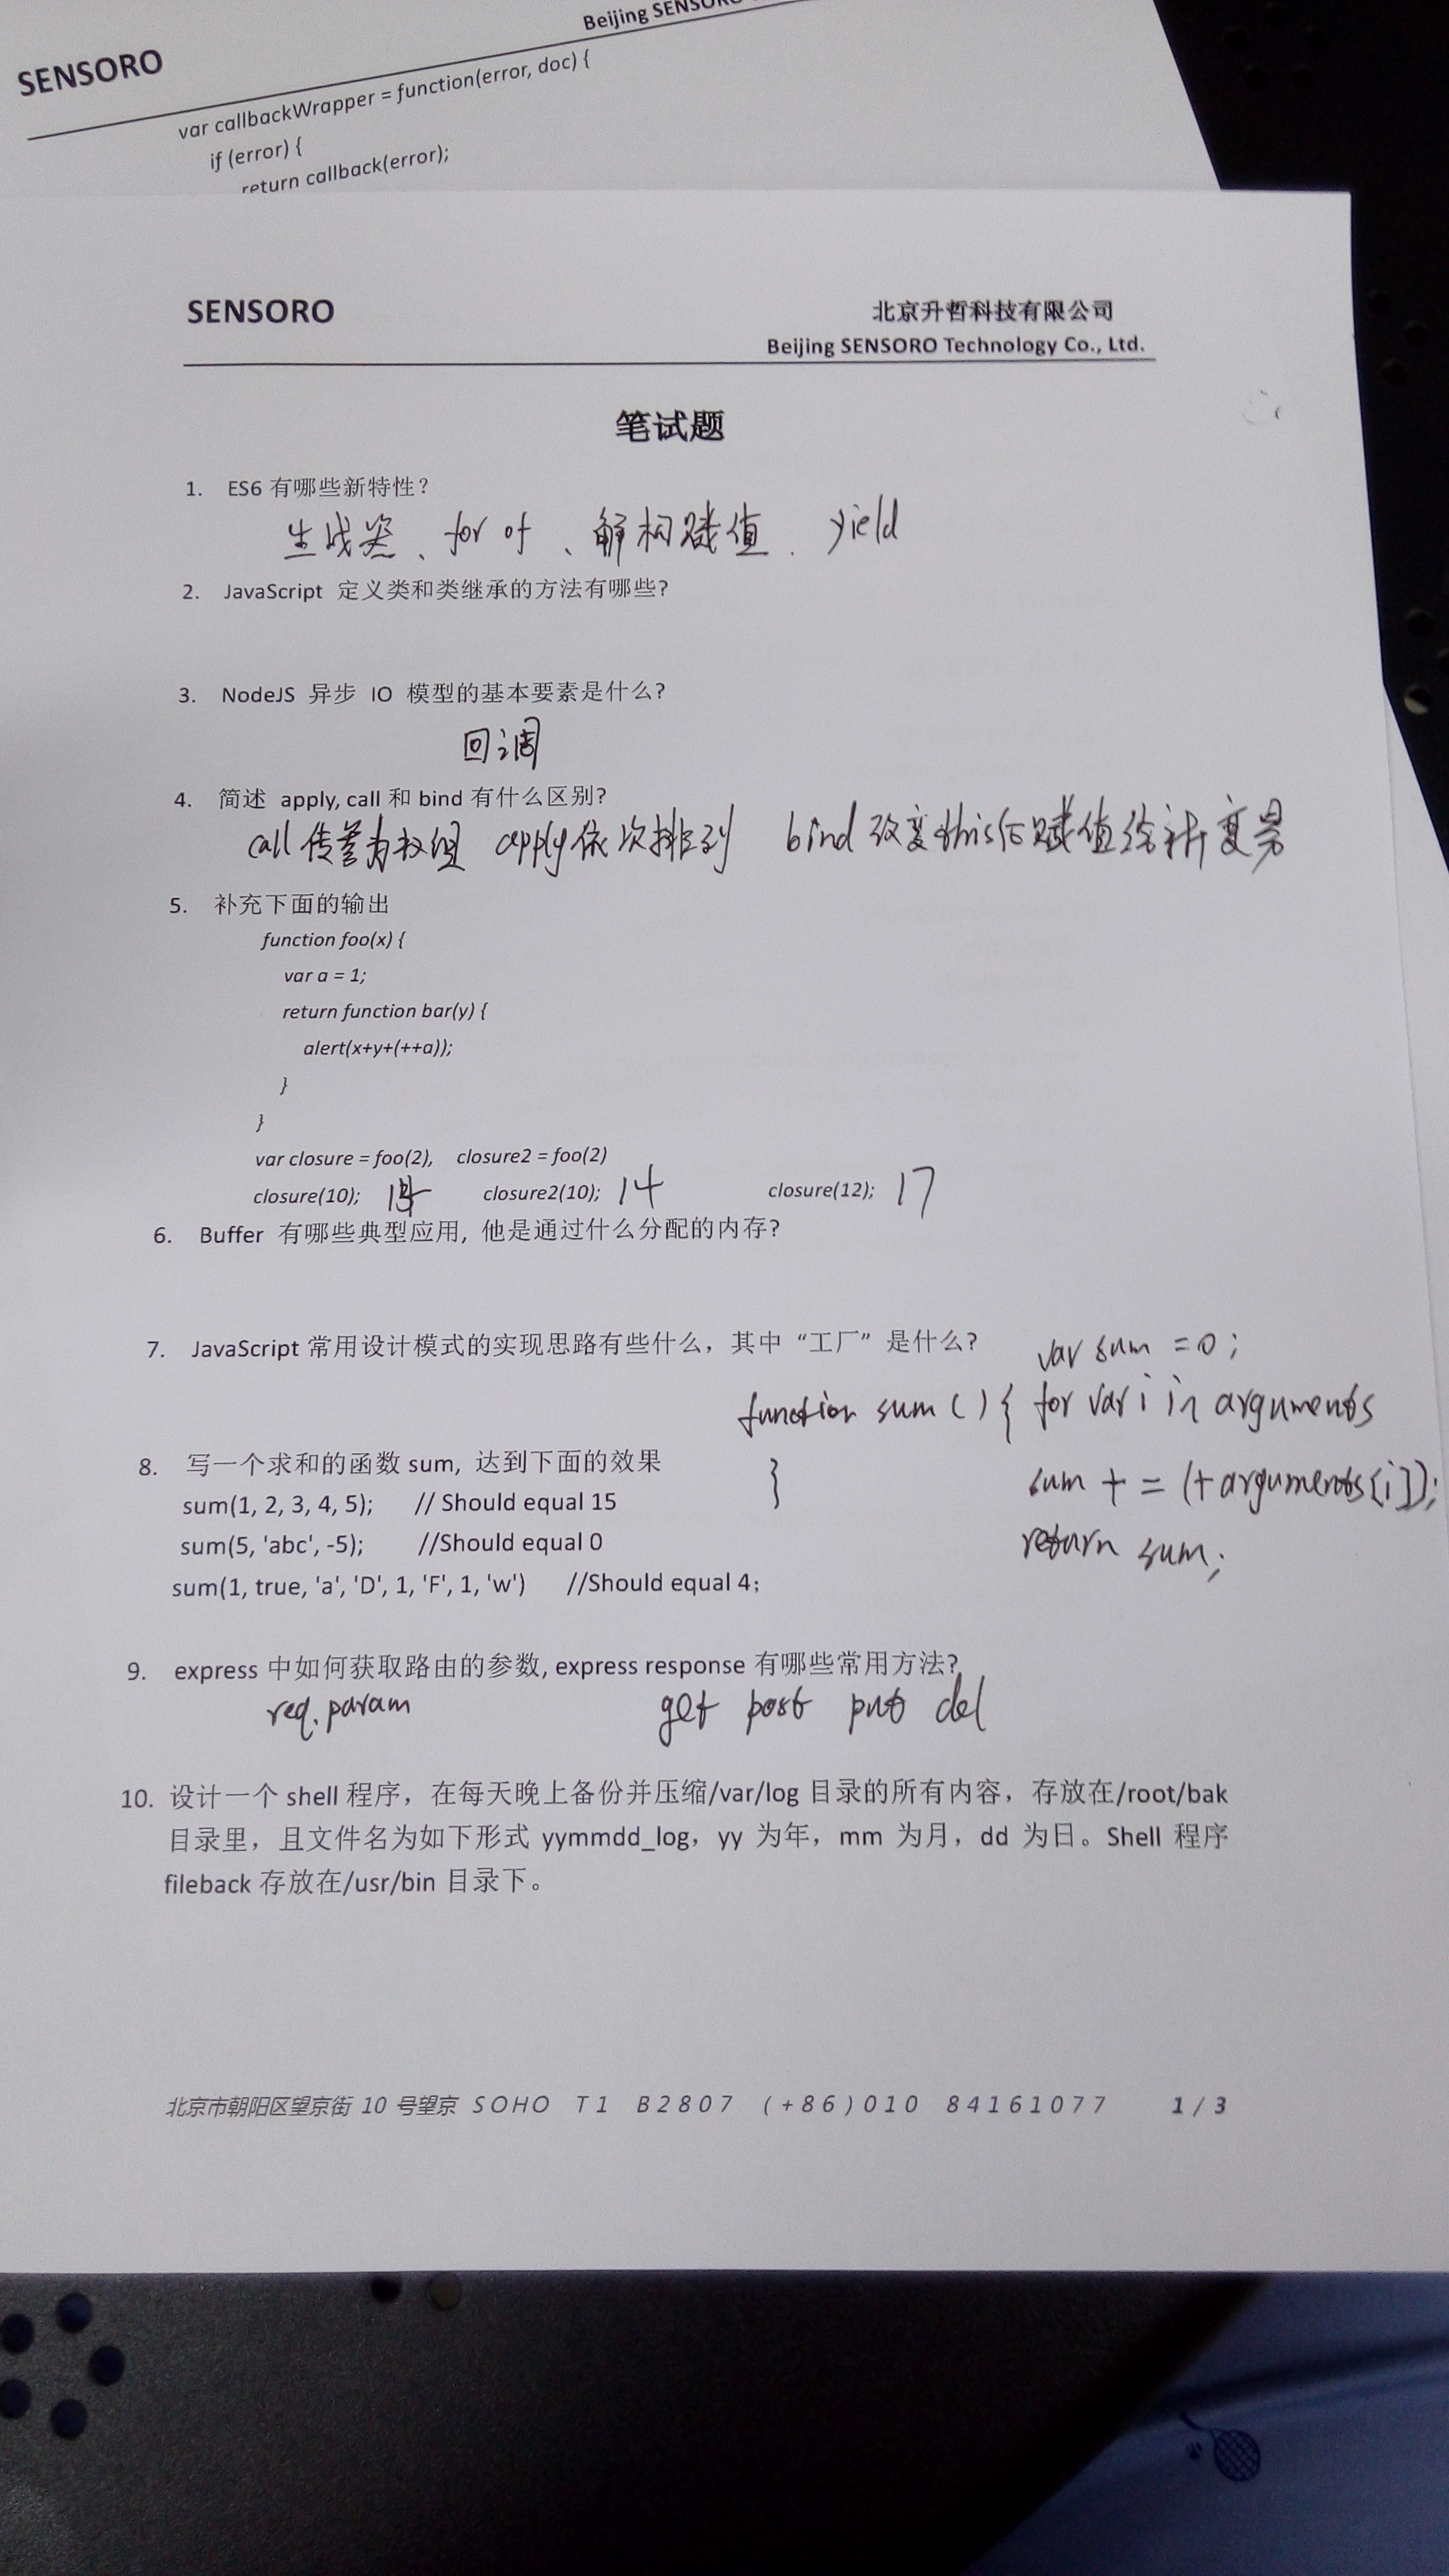 Beijing SENSORO
SENSORO
var callbackWrapper = function(error, doc) {
if (error) {
return callback(error);
SENSORO
北京升哲科技有限公司
Beijing SENSORO Technology Co., Ltd.
笔试题
1. ES6 有哪些新特性?
生成器、for of、解构赋值、yield
2. JavaScript 定义类和类继承的方法有哪些?
3. NodeJS 异步 IO 模型的基本要素是什么?
回调
4. 简述 apply, call 和 bind 有什么区别?
call 传参为数组 apply 依次排列 bind 改变this后赋值给新变量
5. 补充下面的输出
function foo(x) {
var a = 1;
return function bar(y) {
alert(x+y+(++a));
}
}
var closure = foo(2), closure2 = foo(2)
closure(10); 14 closure2(10); 14 closure(12); 17
6. Buffer 有哪些典型应用, 他是通过什么分配的内存?
7. JavaScript 常用设计模式的实现思路有些什么，其中 “工厂” 是什么?
var sum = 0;
function sum () { for var i in arguments
8. 写一个求和的函数 sum, 达到下面的效果
} sum += (+arguments[i]);
sum(1, 2, 3, 4, 5); // Should equal 15
return sum;
sum(5, 'abc', -5); //Should equal 0
sum(1, true, 'a', 'D', 1, 'F', 1, 'w') //Should equal 4;
9. express 中如何获取路由的参数, express response 有哪些常用方法?
req.param get post put del
10. 设计一个 shell 程序，在每天晚上备份并压缩/var/log 目录的所有内容，存放在/root/bak
目录里，且文件名为如下形式 yymmdd_log，yy 为年，mm 为月，dd 为日。Shell 程序
fileback 存放在/usr/bin 目录下。
北京市朝阳区望京街 10 号望京 SOHO T1 B2807 (+86)010 84161077 1 / 3